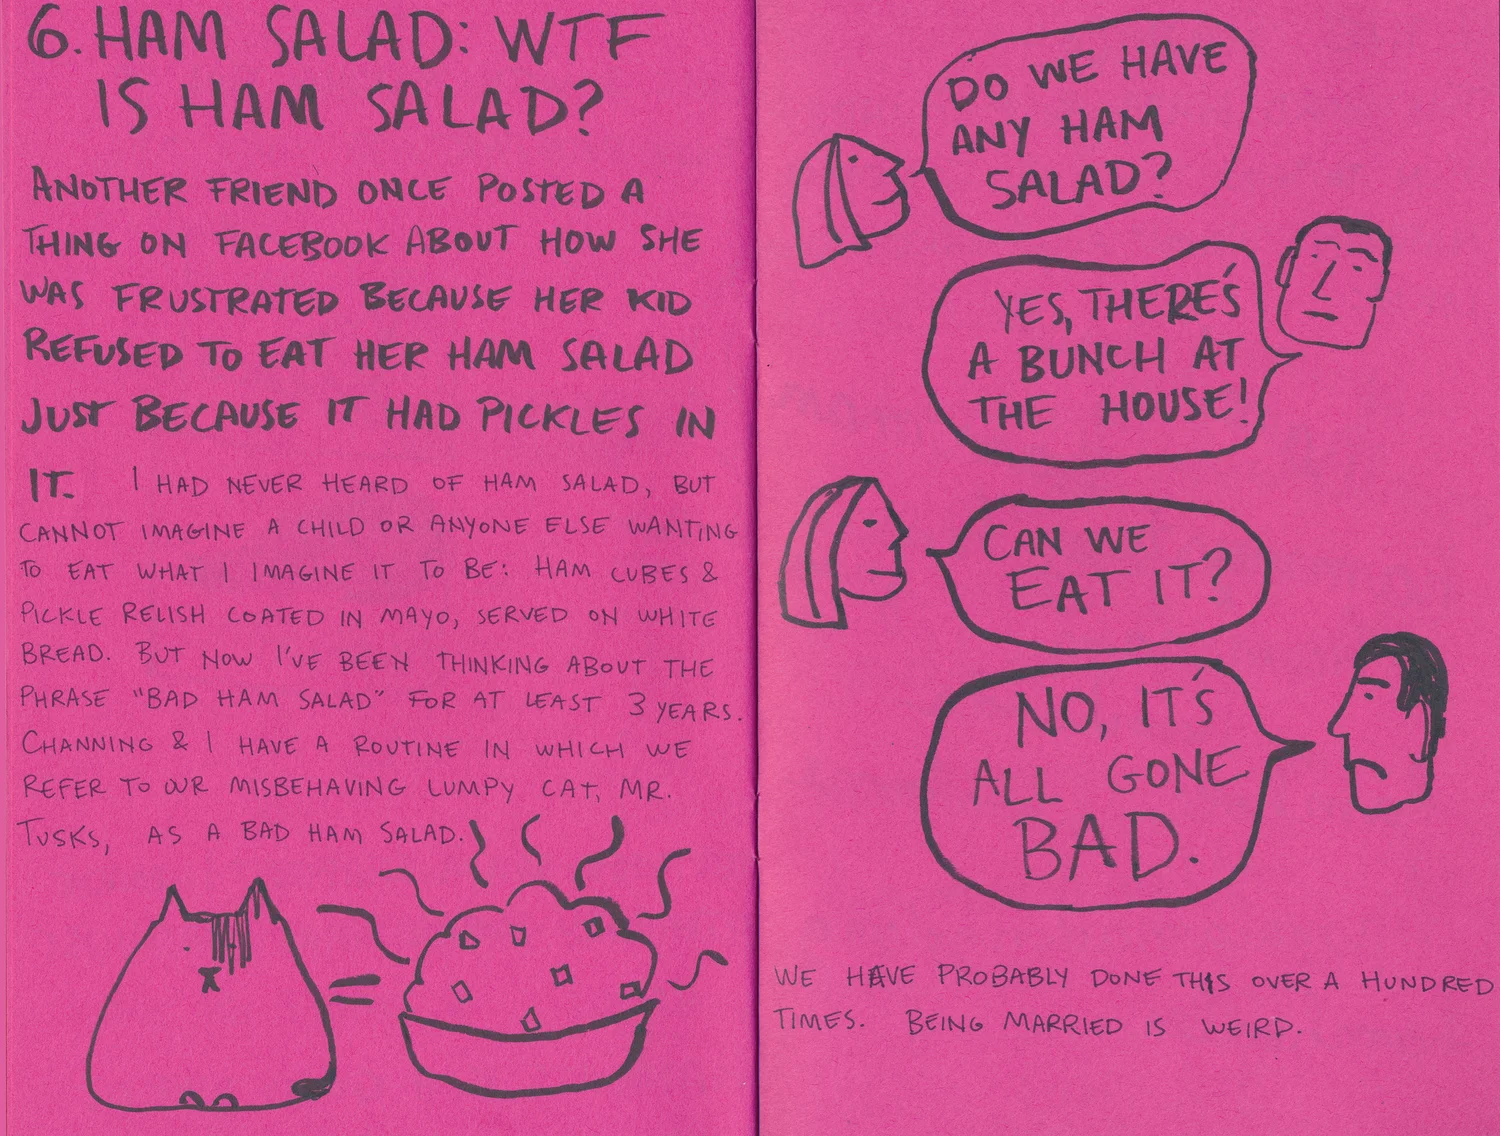 6. HAM SALAD: WTF
IS HAM SALAD?
ANOTHER FRIEND ONCE POSTED A
THING ON FACEBOOK ABOUT HOW SHE
WAS FRUSTRATED BECAUSE HER KID
REFUSED TO EAT HER HAM SALAD
JUST BECAUSE IT HAD PICKLES IN
IT. I HAD NEVER HEARD OF HAM SALAD, BUT
CANNOT IMAGINE A CHILD OR ANYONE ELSE WANTING
TO EAT WHAT I IMAGINE IT TO BE: HAM CUBES &
PICKLE RELISH COATED IN MAYO, SERVED ON WHITE
BREAD. BUT NOW I'VE BEEN THINKING ABOUT THE
PHRASE "BAD HAM SALAD" FOR AT LEAST 3 YEARS.
CHANNING & I HAVE A ROUTINE IN WHICH WE
REFER TO OUR MISBEHAVING LUMPY CAT, MR.
TUSKS, AS A BAD HAM SALAD.
=
DO WE HAVE
ANY HAM
SALAD?
YES, THERE'S
A BUNCH AT
THE HOUSE!
CAN WE
EAT IT?
NO, IT'S
ALL GONE
BAD.
WE HAVE PROBABLY DONE THIS OVER A HUNDRED
TIMES. BEING MARRIED IS WEIRD.